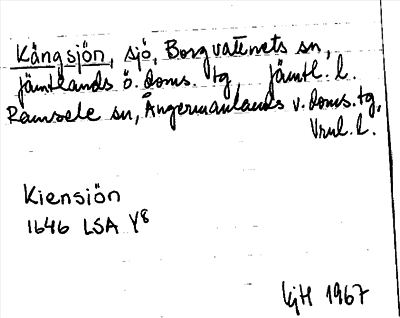 Kångsjön, sjö, Borgvattnets sn,
Jämtlands ö. doms. tg, Jämtl. l.
Ramsele sn, Ångermanlands v. doms. tg,
Vnl. l.
Kiensiön
1646 LSA Y8
LjH 1967